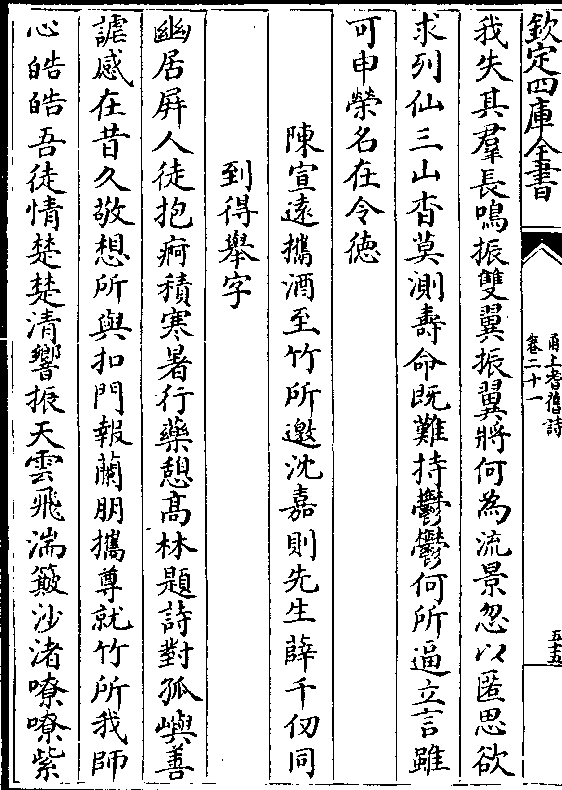 欽定四庫全書
甬上耆舊詩
卷二十一
五十五
我失其羣長鳴振雙翼振翼將何為流景忽以匿思欲
求列仙三山杳莫測壽命既難持鬱鬱何所逼立言雖
可申榮名在令德
陳宣遠攜酒至竹所邀沈嘉則先生薛千仞同
到得舉字
幽居屏人徒抱痾積寒暑行藥憩高林題詩對孤嶼善
謔感在昔久敬想所與扣門報蘭朋攜尊就竹所我師
心皓皓吾徒情楚楚清響振天雲飛湍簸沙渚嘹嘹紫